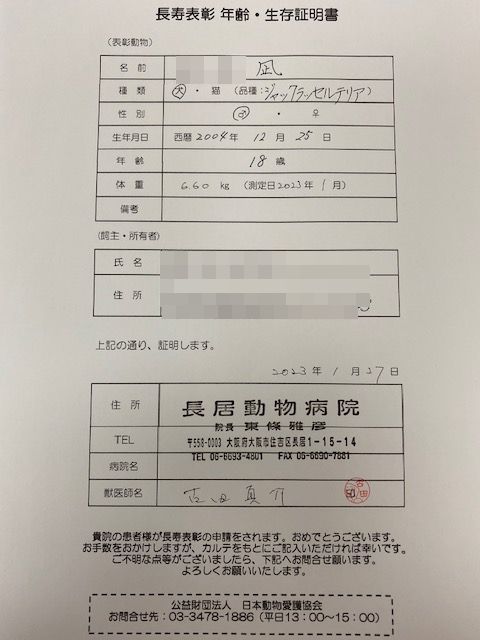 長寿表彰 年齢・生存証明書
(表彰動物)
名前 凪
種類 犬・猫 (品種:ジャックラッセルテリア)
性別 ♂ ・ ♀
生年月日 西暦2004年 12月 25日
年齢 18歳
体重 6.60 kg (測定日2023年 1月)
備考
(飼主・所有者)
氏名
住所
上記の通り、証明します。
2023年 1月 27日
住所 長居動物病院
院長 東條雅彦
〒558-0003 大阪府大阪市住吉区長居1-15-14
TEL
TEL 06-6693-4801 FAX 06-6690-7881
病院名
獣医師名 吉田真介
貴院の患者様が長寿表彰の申請をされます。おめでとうございます。
お手数をおかけしますが、カルテをもとにご記入いただければ幸いです。
ご不明な点等がございましたら、下記へお問合せ願います。
よろしくお願いいたします。
公益財団法人 日本動物愛護協会
お問合せ先:03-3478-1886(平日13:00~15:00)